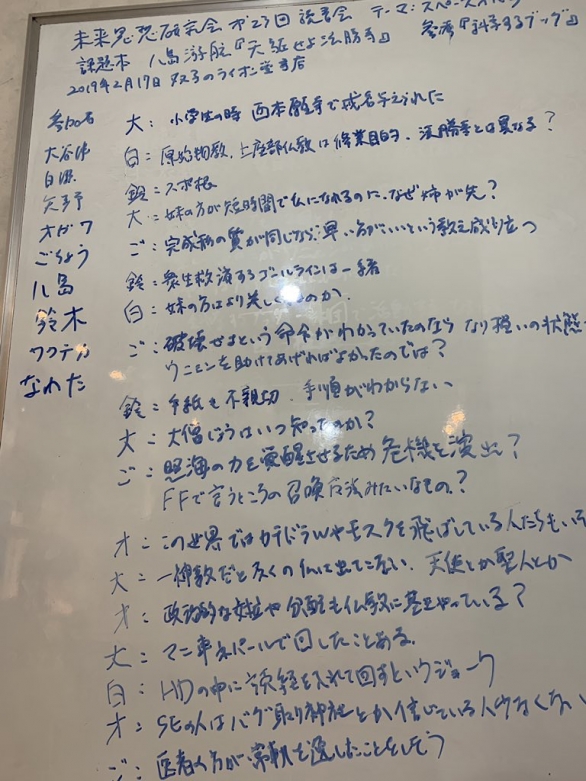 未来思想研究会 第23回 読書会 テーマ:スペースオペラ
課題本 八島游舷『天駆せよ法勝寺』 参考『科学するブッダ』
2019年2月17日 双子のライオン堂書店
参加者
大谷
白
矢野
オガワ
ごぢょう
八島
鈴木
ワクテカ
なれた
大:小学生の時 西本願寺で戒名与えられた
白:原始仏教、上座部仏教は修業目的、法勝寺とは異なる?
鈴:スポ根
大:妹の方が短時間で仏になれるのに、なぜ姉が先?
ご:完成形の質が同じなら、早い方がいいという教え成り立つ
鈴:衆生救済するゴールラインは一緒
白:妹の方はより美しくなるのか、
ご:破壊せよという命令がわかっていたのなら
ウニエンを助けてあげればよかったのでは?
鈴:手紙も不親切、手順がわからない
大:大僧じょうはいつ知ったのか?
ご:照海の力を覚醒させるため危機を演出?
FFで言うところの召喚魔法みたいなもの?
オ:この世界ではカテドラルやモスクを飛ばしている人たちもいる
大:一神教だと多くの仏は出てこない、天使とか聖人とか
オ:政治的な や分配も仏教に基づきやっている?
大:マニ車ネパールで回したことある。
白:HDの中に読経を入れて回すというジョーク
オ:SEの人はバグ取り神社とか信じている人少なくない
ご:医者の方が常軌を逸したことをしそう